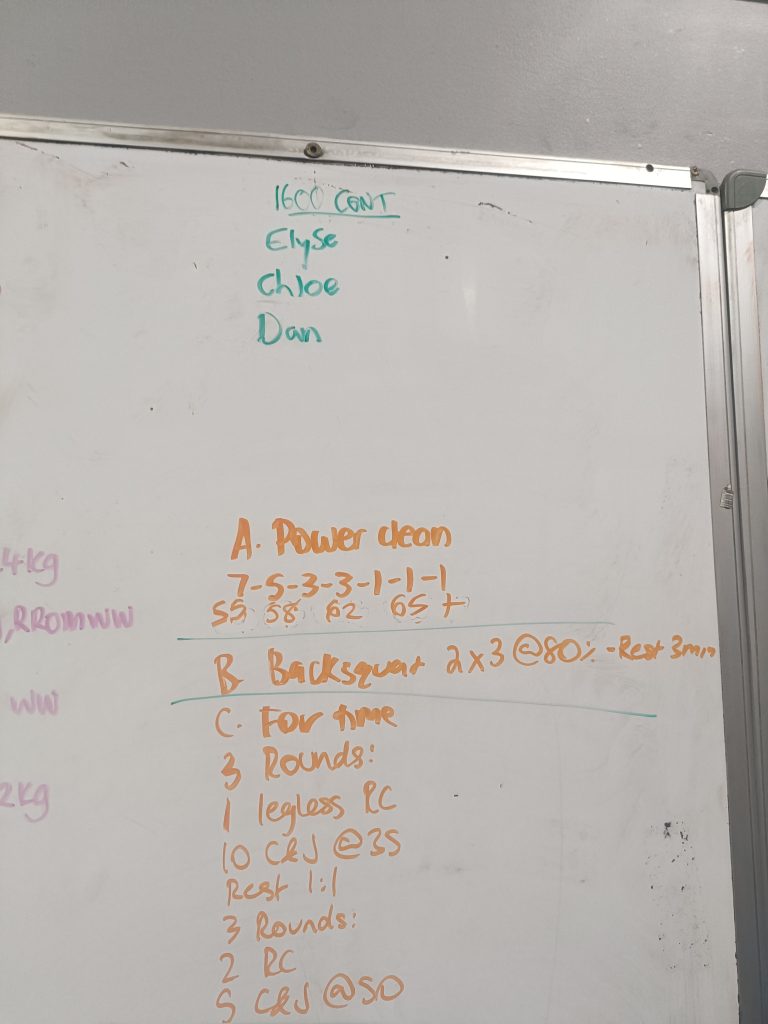 1600 CONT
Elyse
Chloe
Dan
A. Power clean
7-5-3-3-1-1-1
55 58 62 65 +
B. Backsquat 2x3 @80% - Rest 3min
C. For time
3 Rounds:
1 legless RC
10 C&J @35
Rest 1:1
3 Rounds:
2 RC
5 C&J @50
4kg
,RROMWW
WW
2kg